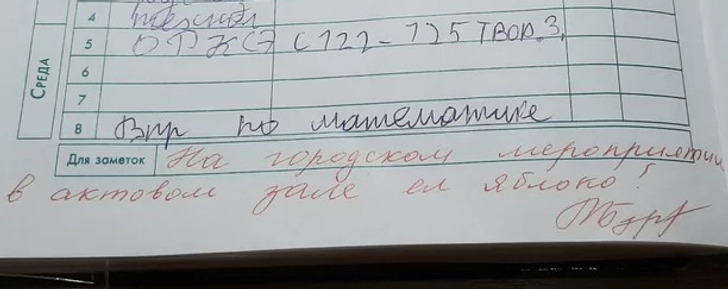 СРЕДА
4
5 ОРКСЭ с 122-125 твор. з.
6
7
8 Впр по математике
Для заметок На городском мероприятии
в актовом зале ел яблоко!